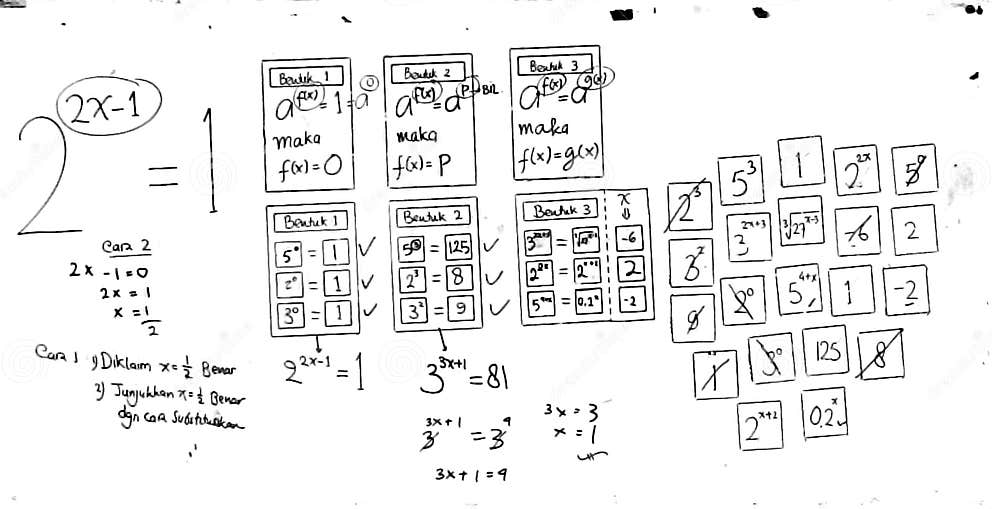 2^{2x-1} = 1
Cara 2
2x - 1 = 0
2x = 1
x = 1/2
Cara 1 1) Diklaim x = 1/2 Benar
2) Tunjukkan x = 1/2 Benar
dgn cara Substitusikan
Bentuk 1
a^{f(x)} = 1 = a^0
maka
f(x) = 0
Bentuk 2
a^{f(x)} = a^p → Bil
maka
f(x) = p
Bentuk 3
a^{f(x)} = a^{g(x)}
maka
f(x) = g(x)
Bentuk 1
5^0 = 1 ✓
2^0 = 1 ✓
3^0 = 1 ✓
2^{2x-1} = 1
Bentuk 2
5^3 = 125 ✓
2^3 = 8 ✓
3^2 = 9 ✓
3^{3x+1} = 81
3^{3x+1} = 3^9
3x + 1 = 9
3x = 3
x = 1
Bentuk 3 x
-6
2^{2x} = 2^{x+2} 2
= 0.2^x -2
2^3 5^3 1 2^{2x} 5^0
3^2 3^{2x+3} ∛27^{x-3} -6 2
9 2^0 5^{4+x} 1 -2
1 3^0 125 8
2^{x+2} 0.2^x